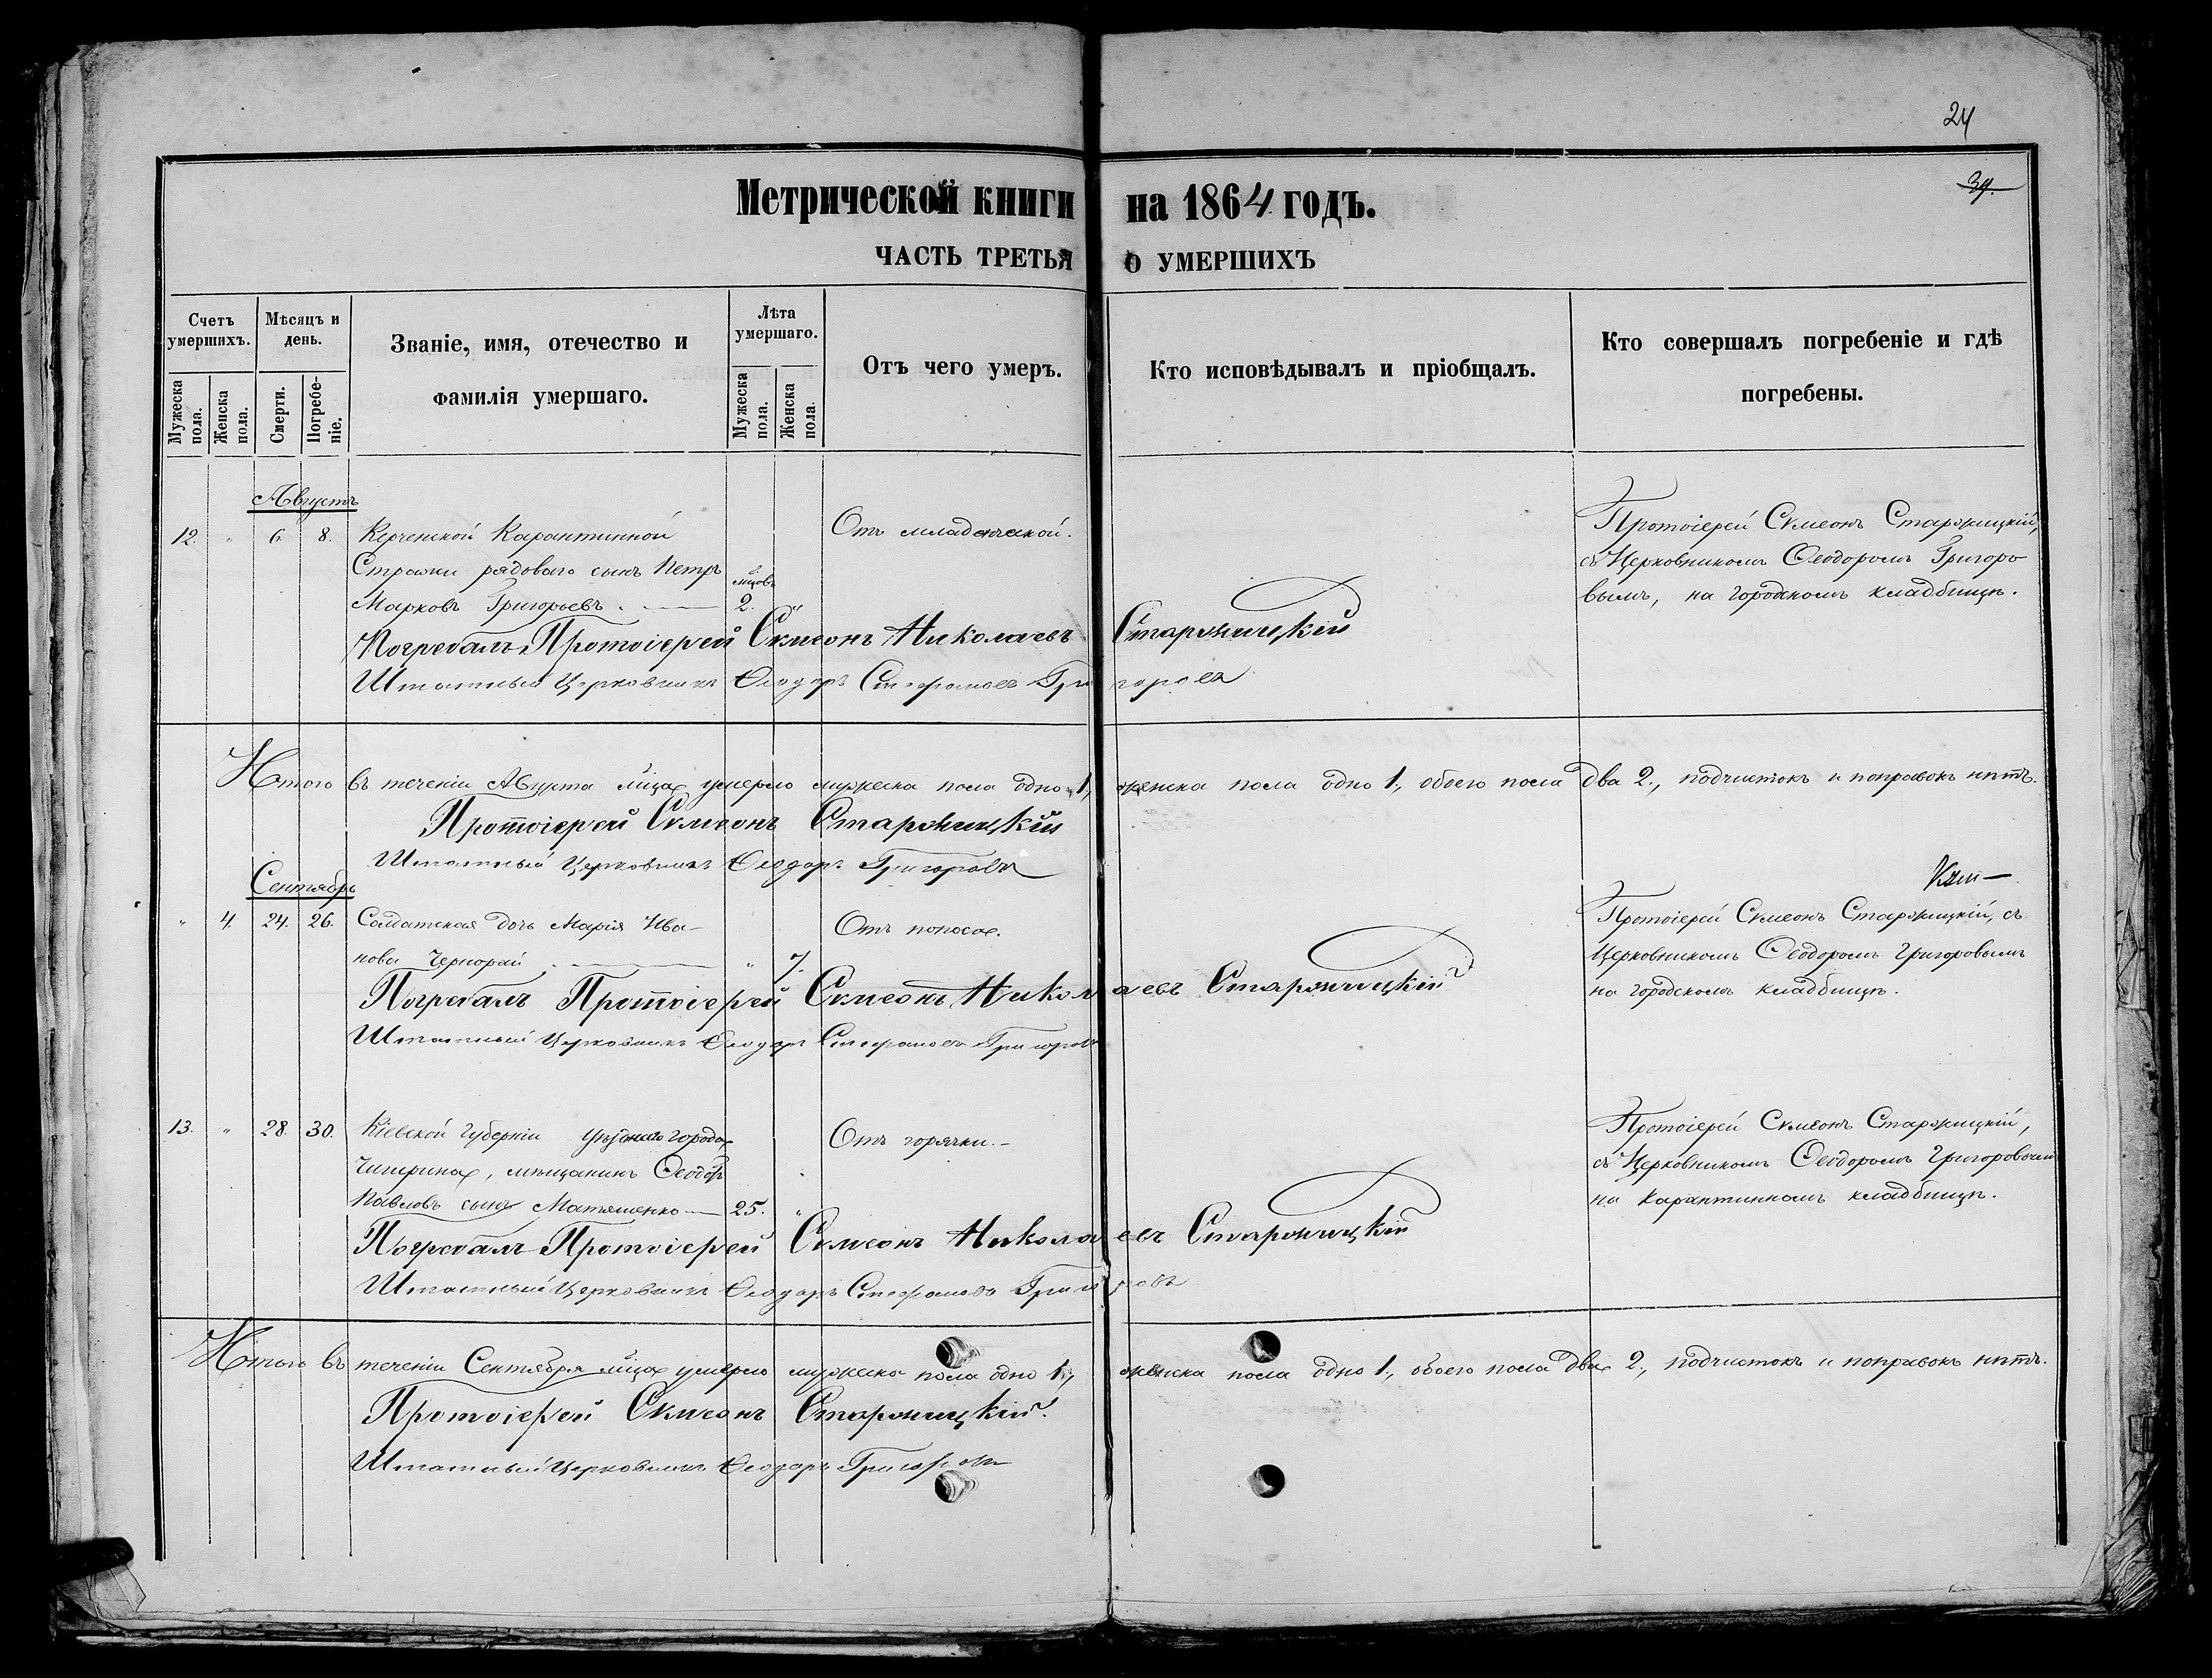 24
39.
Метрической книги на 1864 годъ.
ЧАСТЬ ТРЕТЬЯ О УМЕРШИХЪ
Счетъ умершихъ.
Мужеска пола.
Женска пола.
Мѣсяцъ и день.
Смерти.
Погребеніе.
Званіе, имя, отечество и фамилія умершаго.
Лѣта умершаго.
Мужеска пола.
Женска пола.
Отъ чего умеръ.
Кто исповѣдывалъ и пріобщалъ.
Кто совершалъ погребеніе и гдѣ погребены.
Августъ
12. " 6. 8. Керченской Карантинной
Стражи рядоваго сынъ Петръ
Марковъ Григорьевъ. — мцовъ 2. "
Отъ младенческой.
Протоіерей Сѵмеонъ Старжицкій,
съ Церковникомъ Ѳеодоромъ Григоро
вымъ, на городскомъ кладбищѣ.
Погребалъ Протоіерей Сѵмеонъ Николаевъ Старжицкій
Штатный Церковникъ Ѳеодоръ Стефановъ Григоровъ
Итого въ теченіи Августа мѣца умерло мужеска пола одно 1, женска пола одно 1., обоего пола два 2., подчистокъ и поправокъ нѣтъ.
Протоіерей Сѵмеонъ Старжицкій
Штатный Церковникъ Ѳеодоръ Григоровъ
Сентябрь
" 4. 24. 26. Солдатская дочь Марія Ива-
нова Чернорай — " 7.
Отъ поноса.
Протоіерей Сѵмеонъ Старжицкій, съ
Церковникомъ Ѳеодоромъ Григоровымъ
на городскомъ кладбищѣ.
Погребалъ Протоіерей Сѵмеонъ Николаевъ Старжицкій
Штатный Церковникъ Ѳеодоръ Стефановъ Григоровъ
13. " 28. 30. Кіевской Губерніи уѣзднаго города
Чигирина, мѣщанинъ Ѳеодоръ
Павловъ сынъ Матяшенко — 25. "
Отъ горячки. —
Протоіерей Сѵмеонъ Старжицкій,
съ Церковникомъ Ѳеодоромъ Григоровымъ
на Карантинномъ кладбищѣ.
Погребалъ Протоіерей Сѵмеонъ Николаевъ Старжицкій
Штатный Церковникъ Ѳеодоръ Стефановъ Григоровъ
Итого въ теченіи Сентября мѣца умерло мужеска пола одно 1., женска пола одно 1., обоего пола два 2., подчистокъ и поправокъ нѣтъ.
Протоіерей Сѵмеонъ Старжицкій.
Штатный Церковникъ Ѳеодоръ Григоровъ